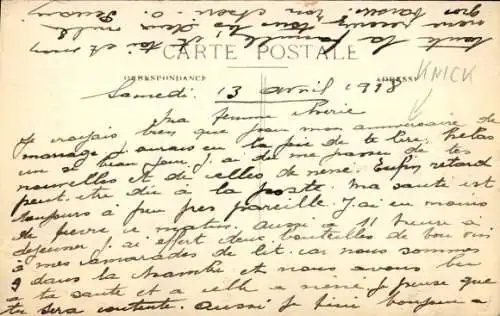 CARTE POSTALE
CORRESPONDANCE
ADRESSE
KNICK
Samedi 13 avril 1918
Ma femme chérie
Je croyais bien que pour mon anniversaire de
mariage j'aurais eu la joie de te lire, hélas
un si beau jour j'ai dû me passer de tes
nouvelles et de celles de néné. Enfin retard
peut être dû à la poste. Ma santé est
toujours à peu près pareille. J'ai eu moins
de fièvre ce matin. Aussi à 11 heures à
déjeuner j'ai offert deux bouteilles de bon vin
à mes camarades de lit. car nous sommes
9 dans la chambre et nous avons bu
à ta santé et à celle à néné. Je pense que
tu sera contente. Aussi je